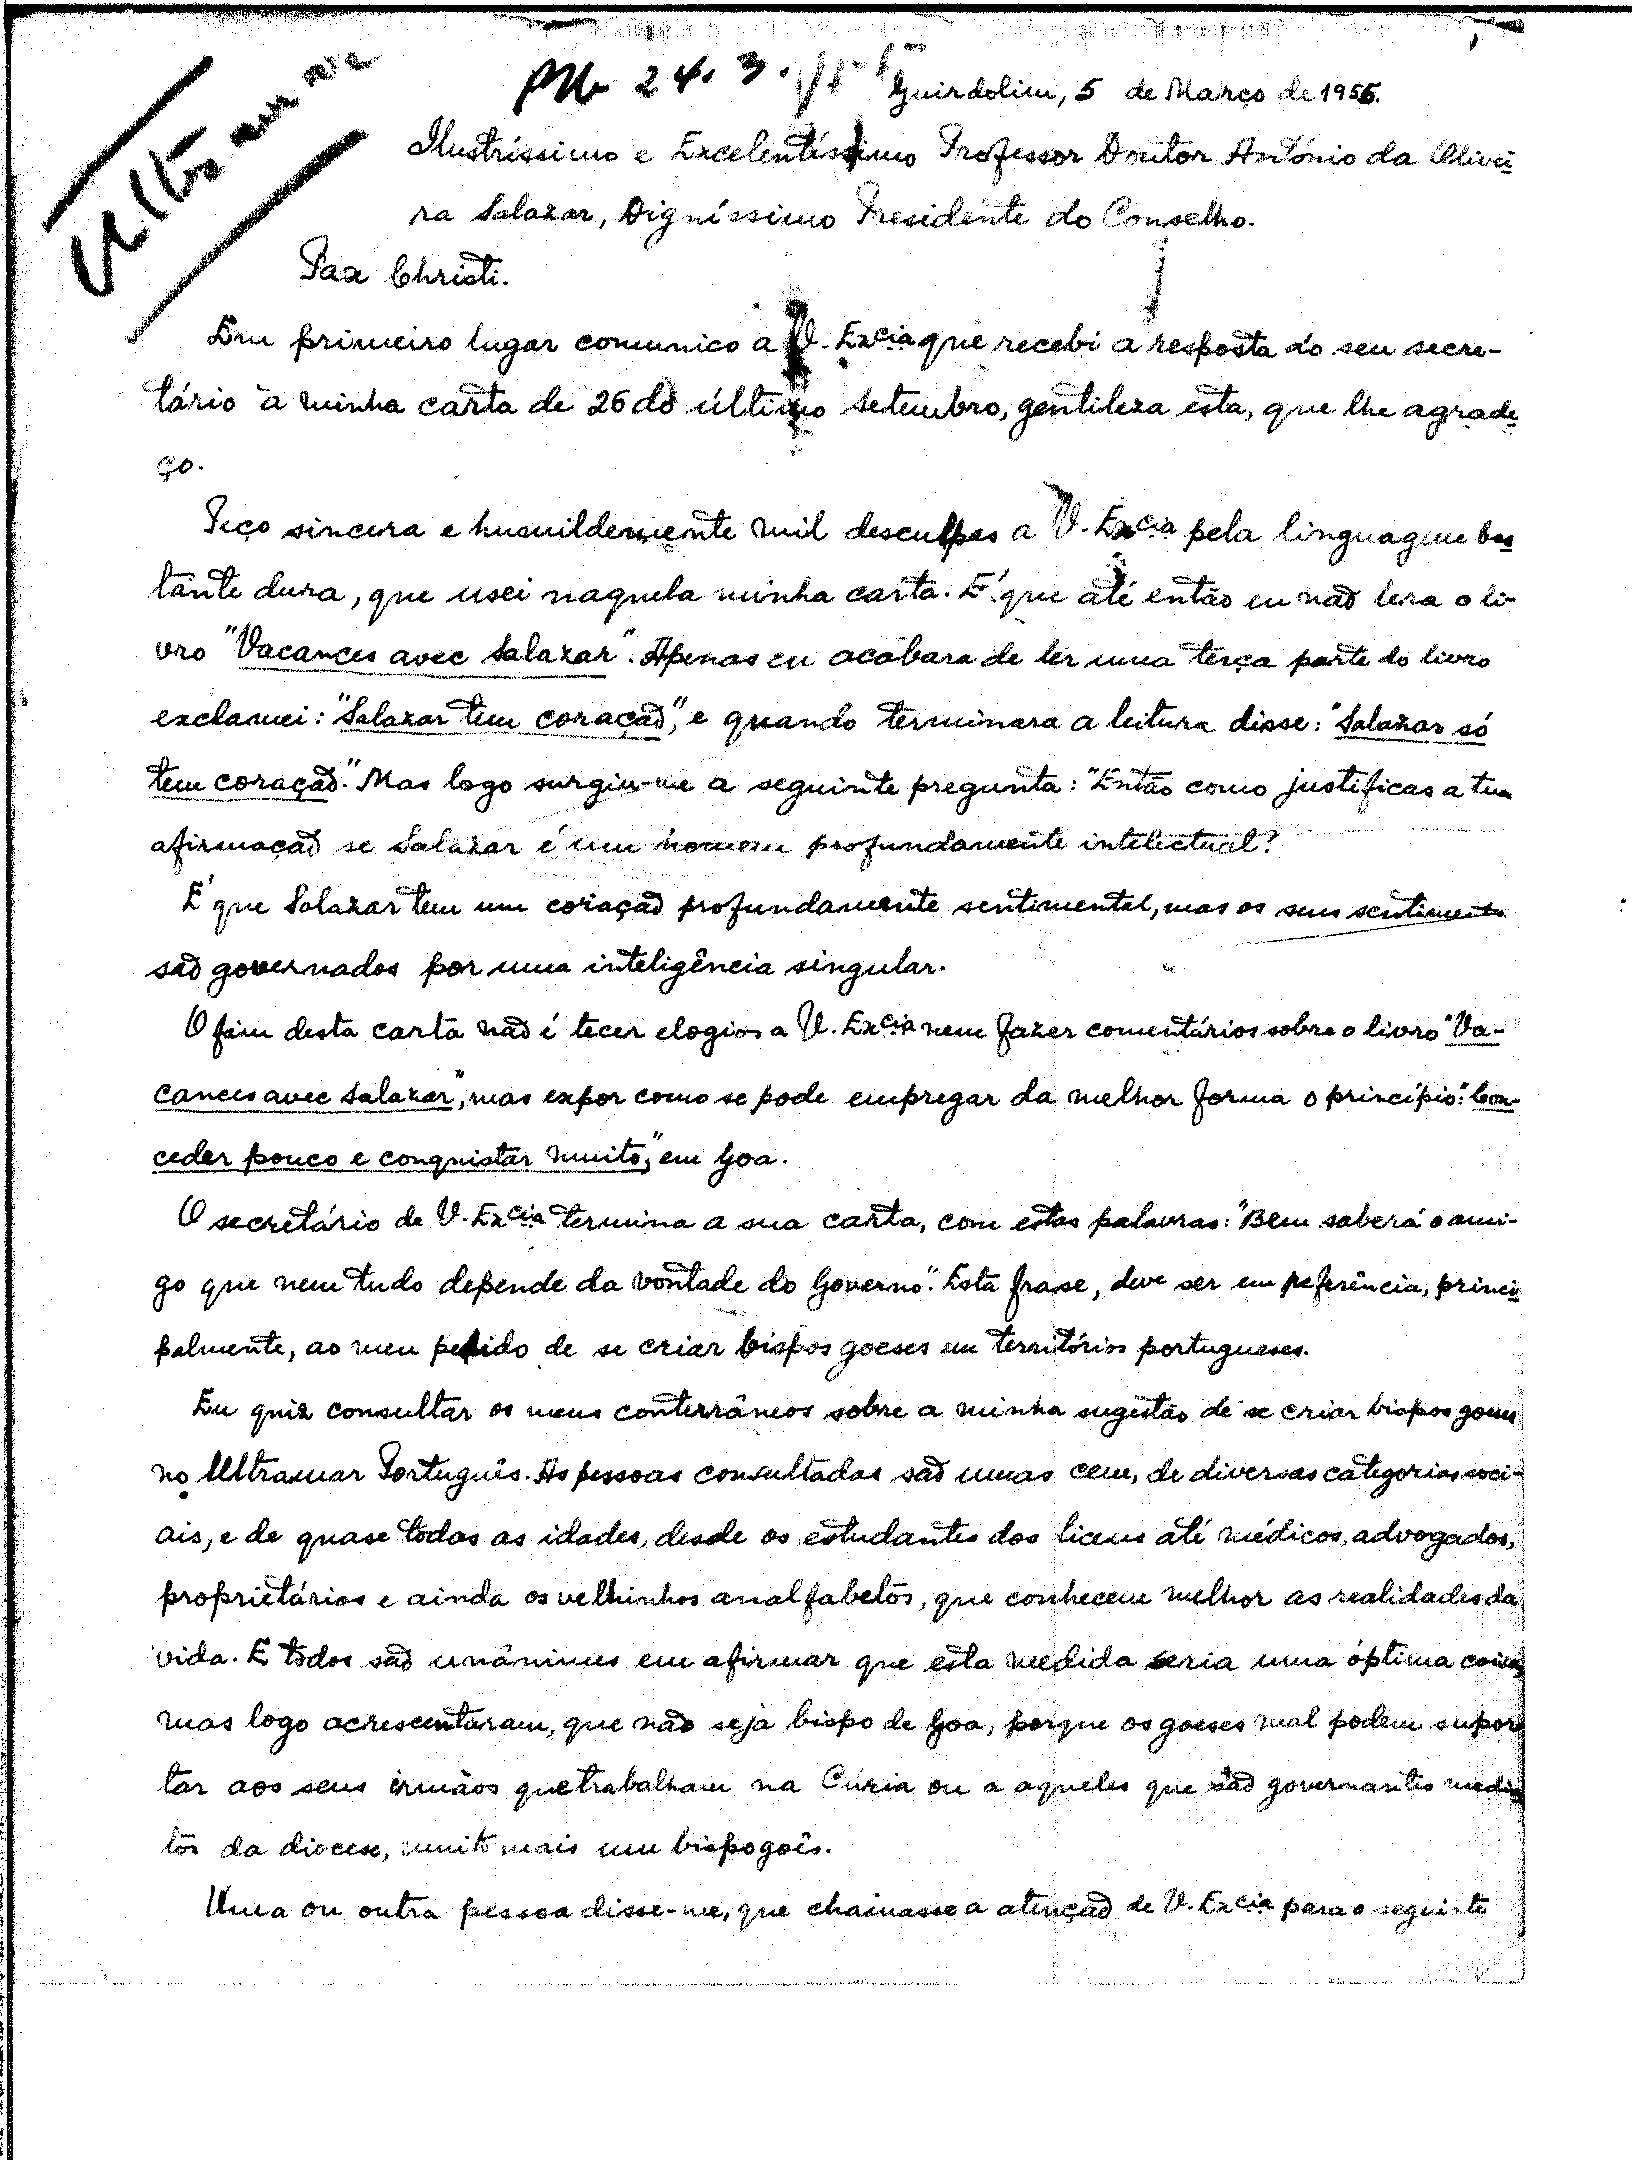 Ultramar
24.3.
Guirdolim, 5 de Março de 1956.
Ilustríssimo e Excelentíssimo Professor Doutor António da Olivei
ra Salazar, Digníssimo Presidente do Conselho.
Pax Christi.
Em primeiro lugar comunico a V. Excia que recebi a resposta do seu secre-
tário à minha carta de 26 do último setembro, gentileza esta, que lhe agrade
ço.
Peço sincera e humildemente mil desculpas a V. Excia pela linguagem bas
tante dura, que usei naquela minha carta. É que até então eu não lera o li-
vro "Vacances avec Salazar". Apenas eu acabara de ler uma terça parte do livro
exclamei: "Salazar tem coração", e quando terminara a leitura disse: "Salazar só
tem coração." Mas logo surgiu-me a seguinte pregunta: "Então como justificas a tua
afirmação se Salazar é um homem profundamente intelectual?
É que Salazar tem um coração profundamente sentimental, mas os seus sentimentos
são governados por uma inteligência singular.
O fim desta carta não é tecer elogios a V. Excia nem fazer comentários sobre o livro "Va-
cances avec Salazar", mas expor como se pode empregar da melhor forma o princípio: "Con-
ceder pouco e conquistar muito", em Goa.
O secretário de V. Excia termina a sua carta, com estas palavras: "Bem saberá o ami-
go que nem tudo depende da vontade do Governo". Esta frase, deve ser em referência, princi
palmente, ao meu pedido de se criar bispos goeses em territórios portugueses.
Eu quiz consultar os meus conterrâneos sobre a minha sugestão de se criar bispos goeses
no Ultramar Português. As pessoas consultadas são umas cem, de diversas categorias soci-
ais, e de quase todas as idades, desde os estudantes dos liceus até médicos, advogados,
proprietários e ainda os velhinhos analfabetos, que conhecem melhor as realidades da
vida. E todos são unânimes em afirmar que esta medida seria uma óptima coisa,
mas logo acrescentaram, que não seja bispo de Goa, porque os goeses mal podem supor
tar aos seus irmãos que trabalham na Cúria ou a aqueles que são governantes medía
tos da diocese, muito mais um bispo goês.
Uma ou outra pessoa disse-me, que chamasse a atenção de V. Excia para o seguinte